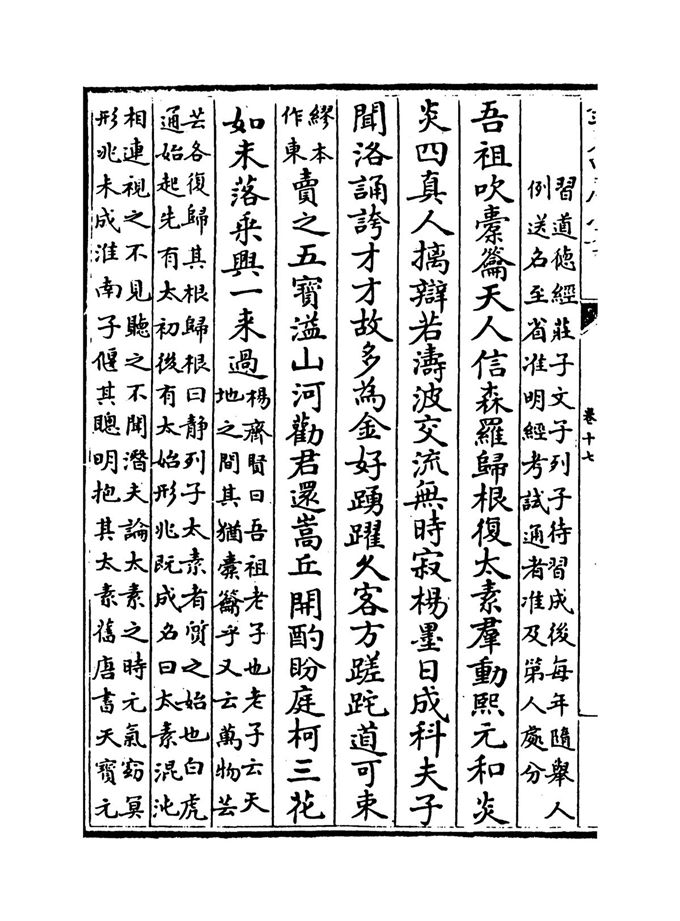 卷十七
習道德經莊子文子列子待習成後每年隨舉人
例送名至省准明經考試通者准及第人處分
吾祖吹橐籥天人信森羅歸根復太素羣動熙元和炎
炎四真人摛辯若濤波交流無時寂楊墨日成科夫子
聞洛誦誇才才故多為金好踴躍久客方蹉跎道可束
繆本
作東
賣之五寶溢山河勸君還嵩丘開酌盼庭柯三花
如未落乗興一来過
楊齊賢曰吾祖老子也老子云天
地之間其猶橐籥乎又云萬物芸
芸各復歸其根歸根曰静列子太素者質之始也白虎
通始起先有太初後有太始形兆既成名曰太素混沌
相連視之不見聽之不聞潛夫論太素之時元氣窈冥
形兆未成淮南子偃其聰明抱其太素舊唐書天寶元